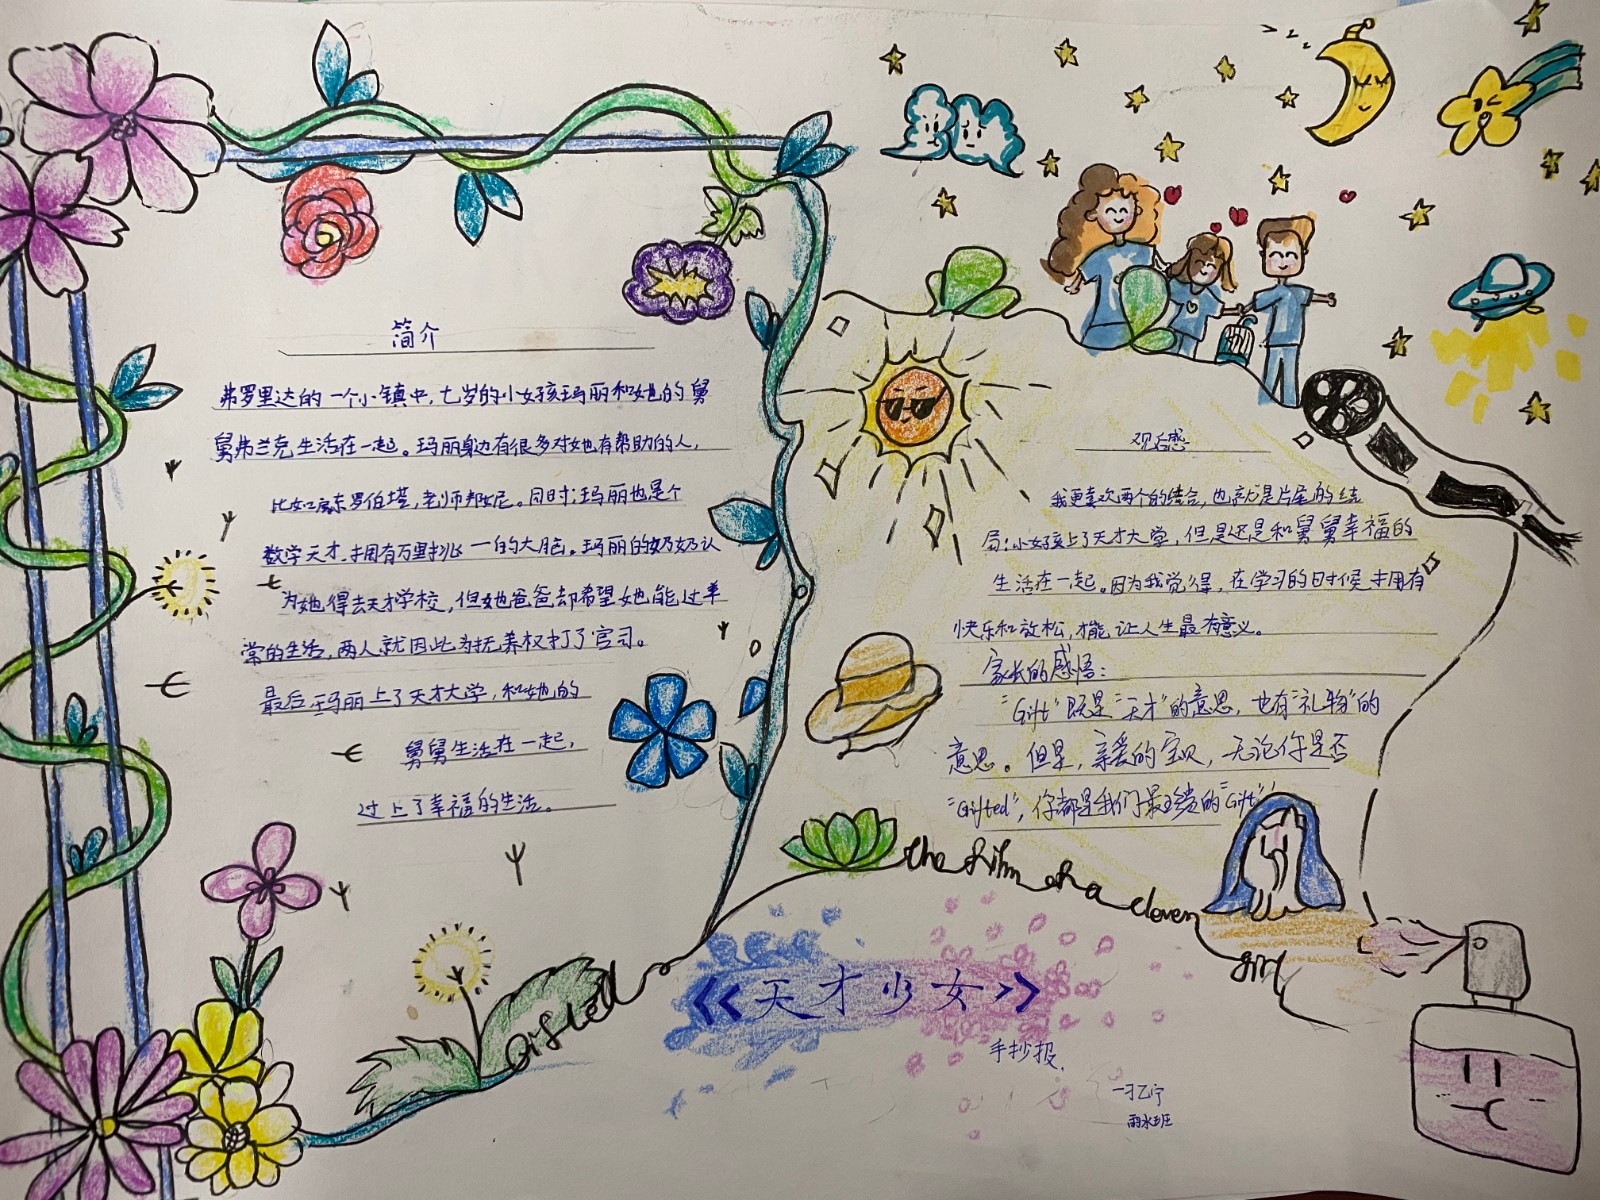 简介
弗罗里达的一个小镇中,七岁的小女孩玛丽和她的舅
舅弗兰克生活在一起。玛丽身边有很多对她有帮助的人,
比如房东罗伯塔,老师邦妮。同时;玛丽也是个
数学天才.拥有万里挑一的大脑。玛丽的奶奶认
为她得去天才学校,但她爸爸却希望她能过平
常的生活,两人就因此为抚养权打了官司。
最后,玛丽上了天才大学,和她的
舅舅生活在一起,
过上了幸福的生活。
观后感
我更喜欢两个的结合,也就是片尾的结
局;小女孩上了天才大学,但是还是和舅舅幸福的
生活在一起。因为我觉得,在学习的时候拥有
快乐和放松,才能让人生最有意义。
家长的感悟:
"Gift"既是"天才"的意思,也有"礼物"的
意思。但是,亲爱的宝贝,无论你是否
"Gifted",你都是我们最珍贵的"Gift"
the film of a clever
girl
Gifted
《天才少女》
手抄报.
一刁乙宁
雨水班